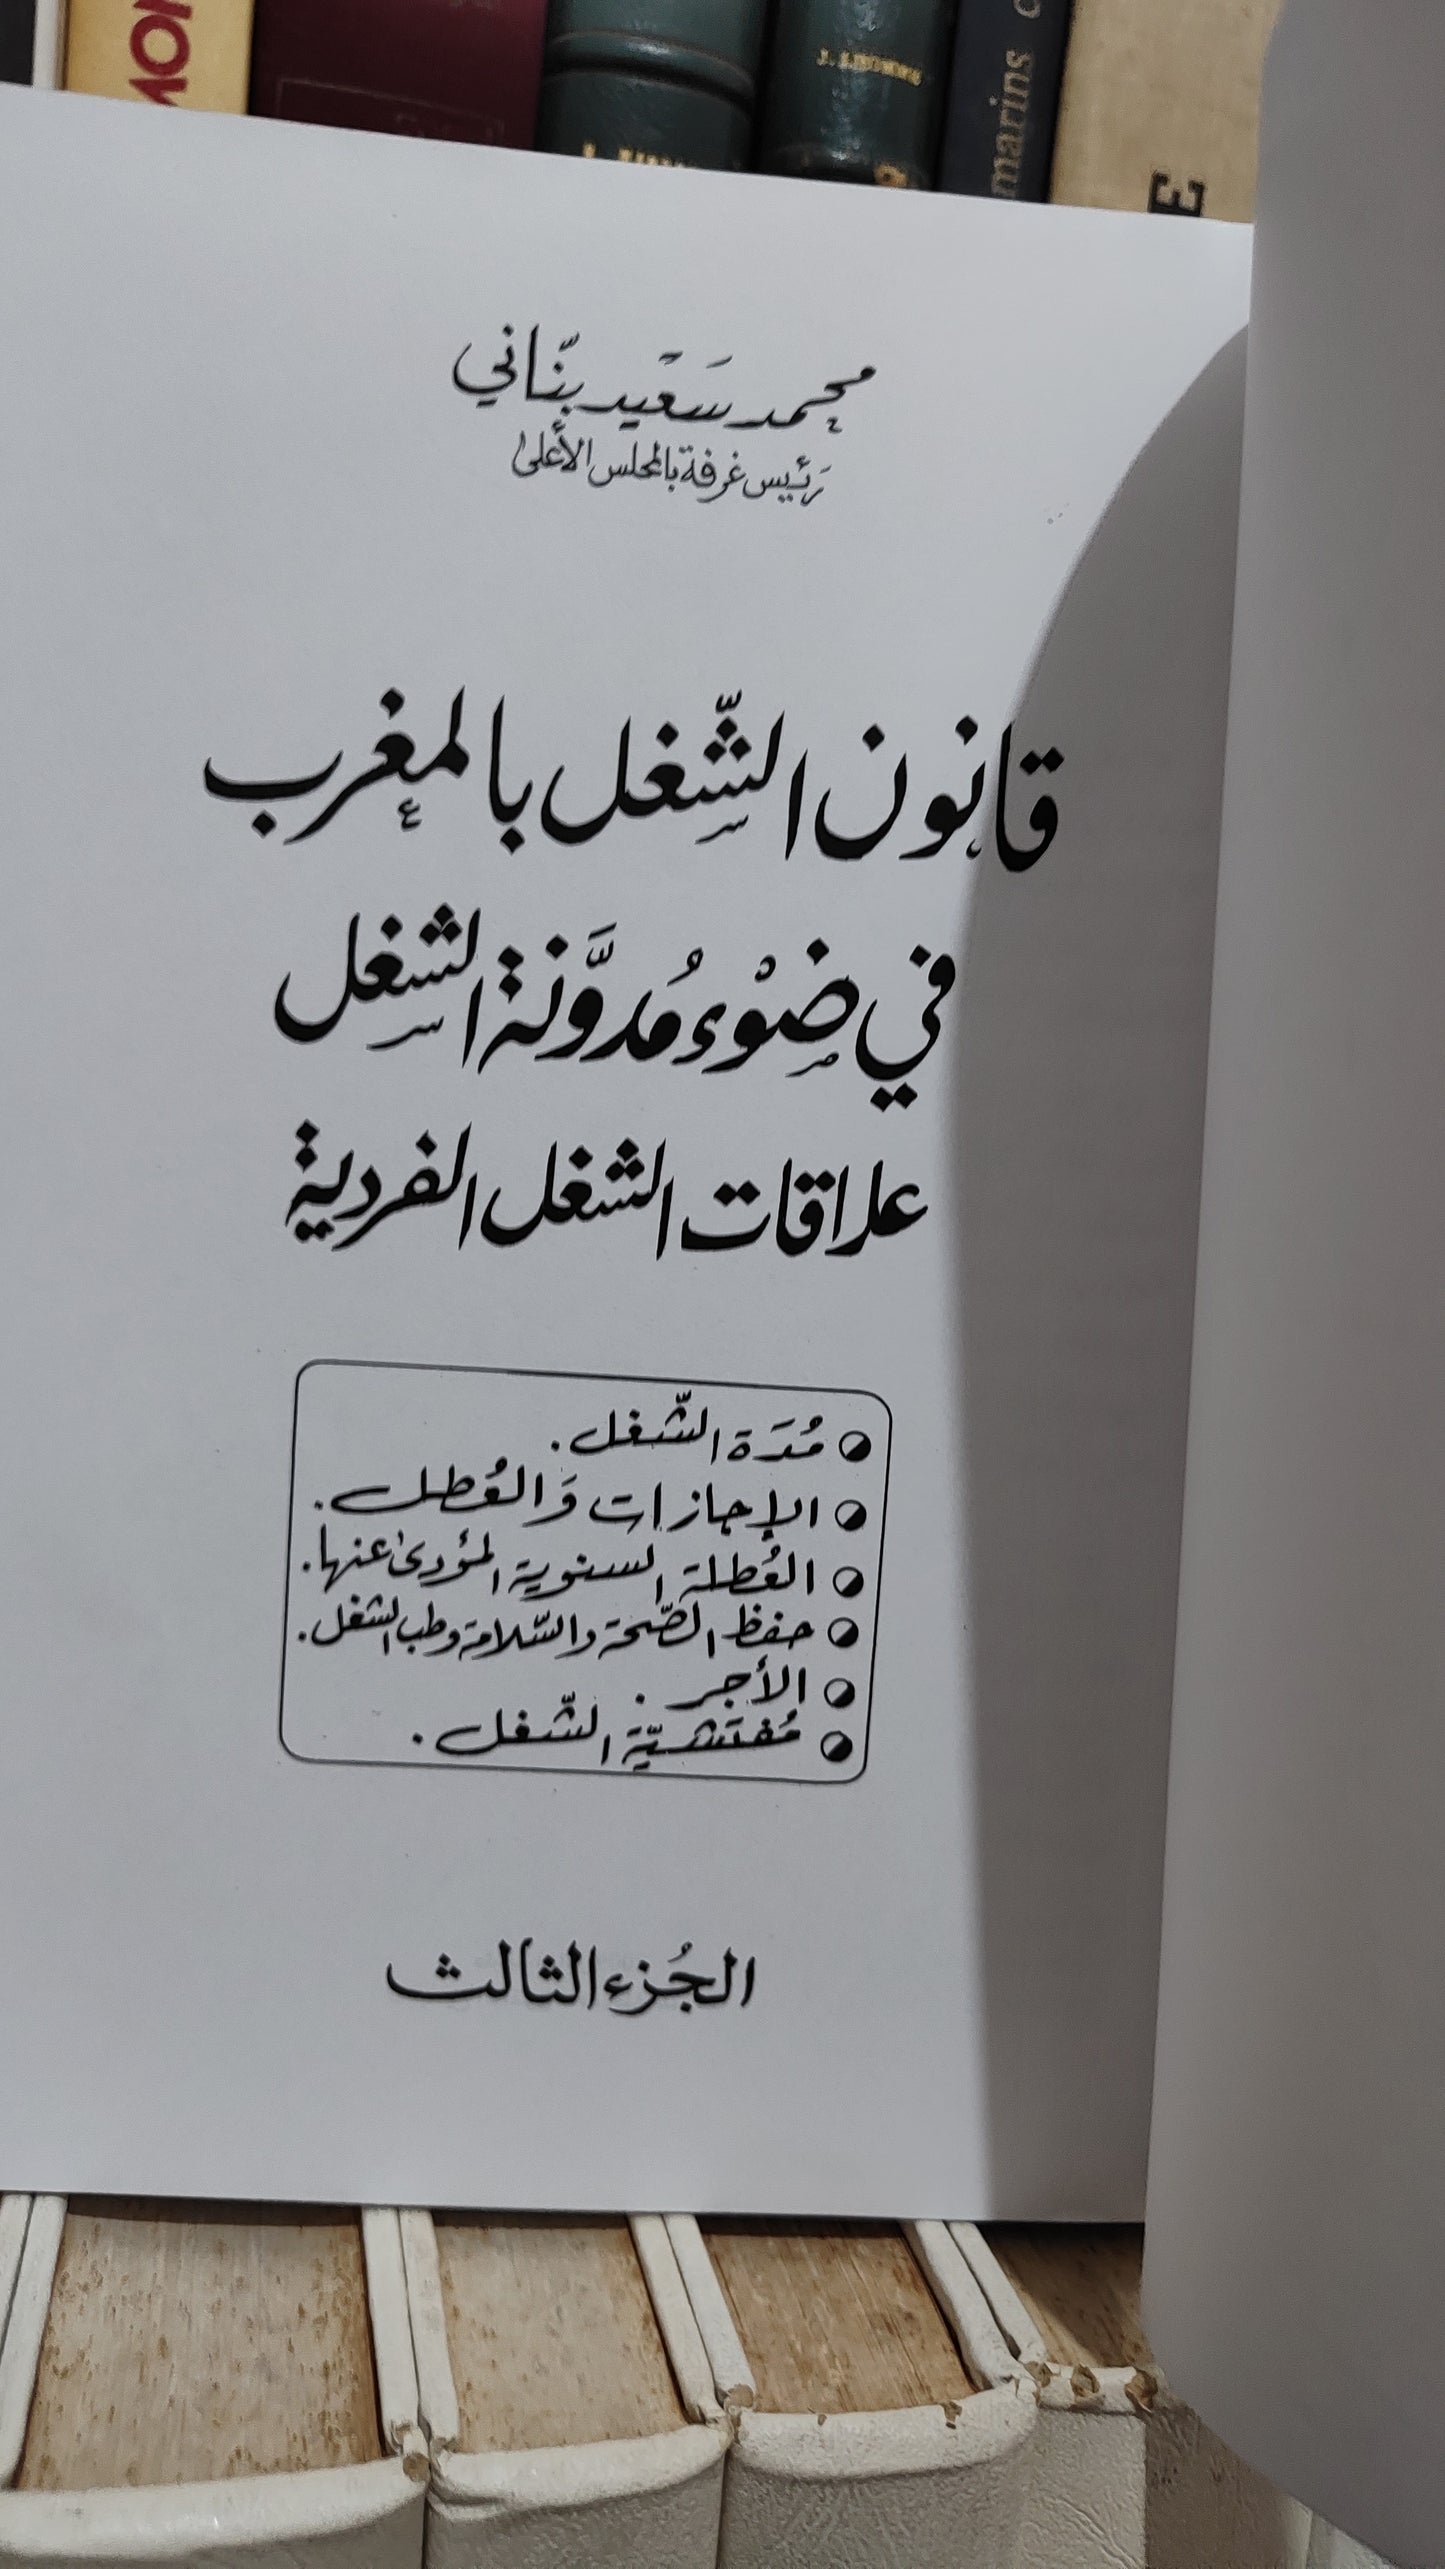 محمد سَعيد بنّاني
رَئيس غرفة بالمجلس الأعلىٰ
قانون الشّغل بالمغرب
في ضوْء مُدوَّنة الشغل
علاقات الشغل الفردية
مُدَة الشّغل.
الإجازات وَالعُطل.
العُطلة السنوية المؤدىٰ عنها.
حفظ الصّحة والسّلامة وطب الشغل.
الأجر.
مُفتشيّة الشّغل.
الجُزء الثالث
marins